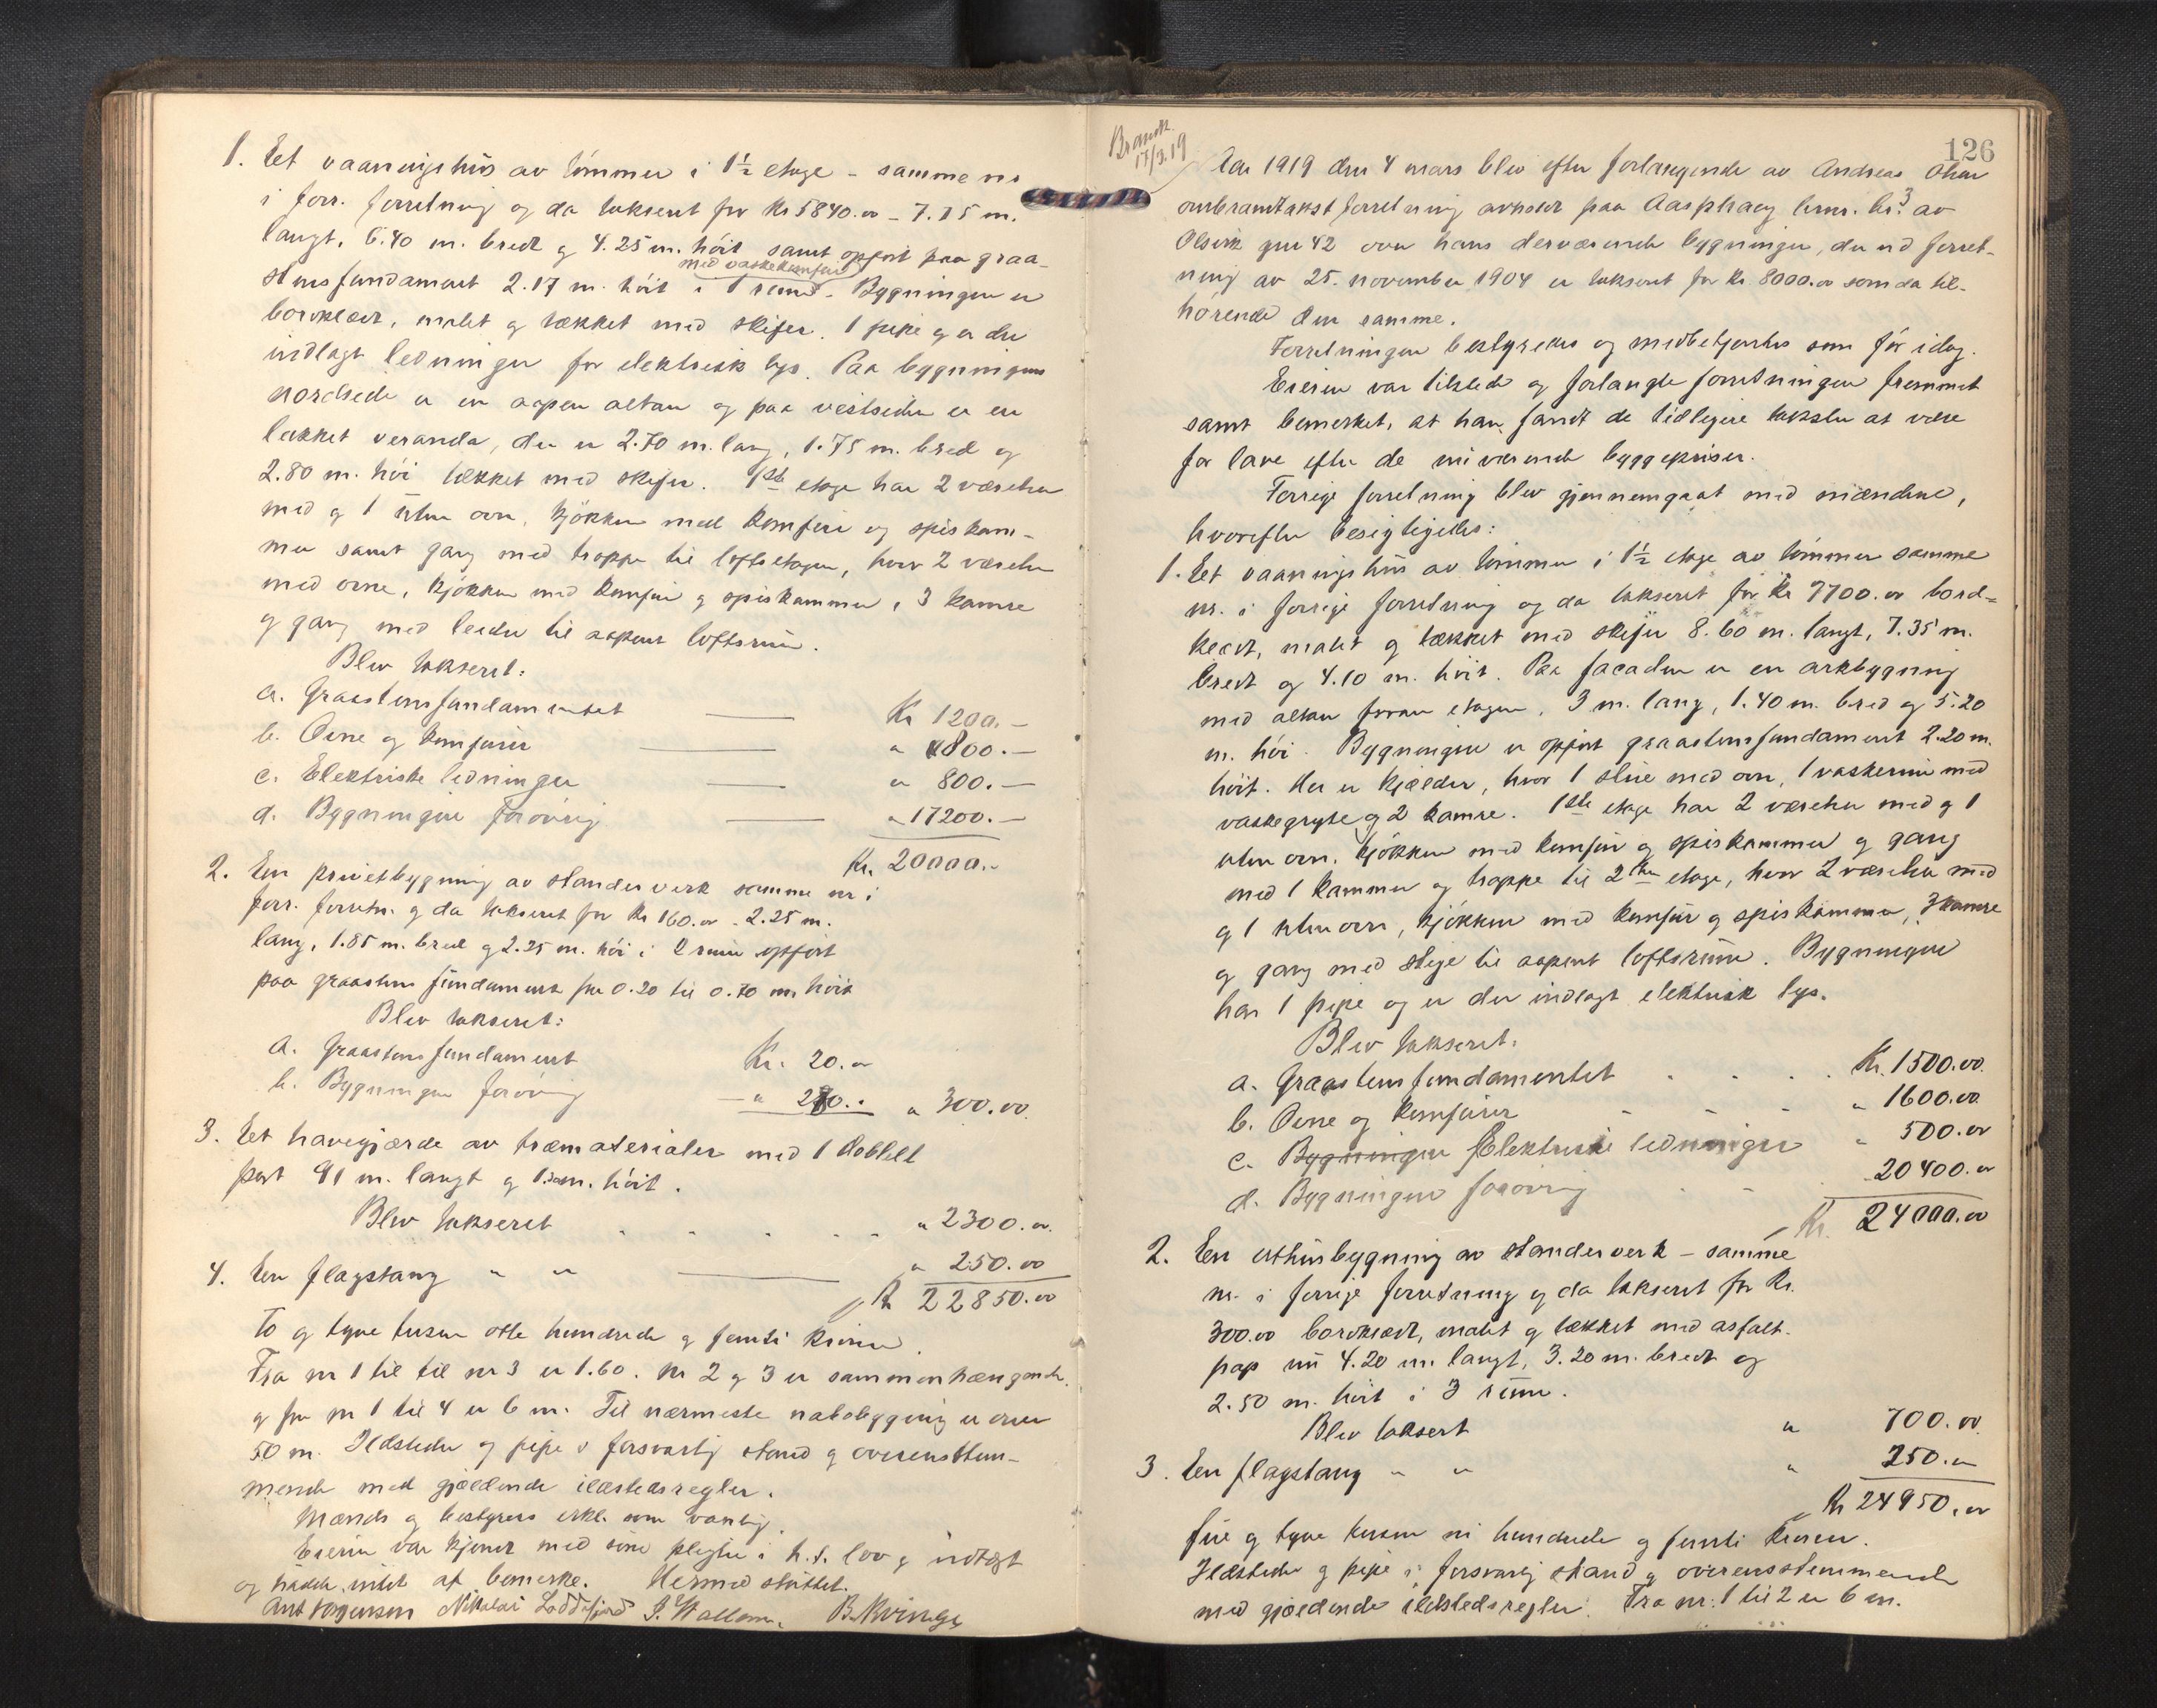 1. Eet vaaningshus av tømmer i 1½ etage - samme nr
i forr. forretning og da takseret for Kr 5840.00 - 7.15 m.
langt, 6.40 m. bredt og 4.25 m. høit samt opført paa graa-
med vaskekomfur
stensfundament 2.17 m. høit i 1 rum. Bygningen er
bordklædt, malet og tækket med skifer. 1 pipe og er der
indlagt ledninger for elektrisk lys. Paa bygningens
nordside er en aapen altan og paa vestsiden er en
lukket veranda, der er 2.70 m. lang, 1.75 m. bred og
2.80 m. høi tækket med skifer. 1ste etage har 2 værelser
med og 1 uten ovn, kjøkken med komfur og spiskam-
mer samt gang med trappe til loftsetagen, hvor 2 værelser
med ovne, kjøkken med komfur og spiskammer, 3 kamre
og gang med leider til aapent loftsrum.
Blev takseret:
a. Graastensfundamentet Kr 1200.-
b. Ovne og komfurer " 800.-
c. Elektriske ledninger " 800.-
d. Bygningen forøvrig " 17200.-
Kr. 20000.-
2. En privetbygning av standerverk samme nr i
forr. forretn. og da takseret for Kr 160.00 - 2.25 m.
lang, 1.85 m. bred og 2.25 m. høi i 2 rum opført
paa graastens fundament fra 0.20 til 0.70 m. høit
Blev takseret:
a. Graastens fundament Kr. 20.00
b. Bygningen forøvrig " 280.. " 300.00
3. Eet havegjærde av træmaterialer med 1 dobbelt
port 91 m. langt og m. høit.
Blev takseret " 2300.00
4. En flagstang " " " 250.00
Kr 22850.00
To og tyve tusen otte hundrede og femti kroner.
Fra nr 1 til til nr 3 er 1.60. nr 2 og 3 er sammenhængende
og fra nr 1 til 4 er 6 m. Til nærmeste nabobygning er over
50 m. Ildsteder og pipe i forsvarlig stand og overensstem-
mende med gjældende ildstedsregler.
Mænds og bestyrers erkl. som vanlig.
Eieren var kjendt med sine pligter i h.t. lov og utlægt
og hadde intet at bemerke. Hermed sluttet.
Ant Jørgensen Nikolai Loddefjord J. Wallem B. Kvinge
Brandk.
17/3.19
126
Aar 1919 den 4 mars blev efter forlangende av Andreas Olsen
ombrandtakstforretning avholdt paa Aasphaug brnr. 3 av
Olsvik gnr 42 over hans derværende bygninger, der ved forret-
ning av 25. november 1904 er takseret for Kr. 8000.00 som da til-
hørende den samme.
Forretningen bestyredes og medbetjentes som før idag.
Eieren var tilstede og forlangte forretningen fremmet
samt bemerket, at han fandt de tidligere takster at være
for lave efter de nuværende byggepriser.
Forrige forretning blev gjennemgaat med mændene,
hvorefter besigtigedes:
1. Eet vaaningshus av tømmer i 1½ etage av tømmer samme
nr. i forrige forretning og da takseret for Kr 7700.00 bord-
klædt, malet og tækket med skifer 8.60 m. langt, 7.35 m.
bredt og 4.10 m. høit. Paa facaden er en arkbygning
med altan foran etagen, 3 m. lang, 1.40 m. bred og 5.20
m. høi. Bygningen er opført graastensfundament 2.20 m.
høit. Der er kjælder, hvor 1 stue med ovn, 1 vaskerum med
vaskegryte og 2 kamre. 1ste etage har 2 værelser med og 1
uten ovn. kjøkken med komfur og spiskammer og gang
med 1 kammer og trappe til 2den etage, hvor 2 værelser med
og 1 uten ovn, kjøkken med komfur og spiskammer, 3 kamre
og gang med stige til aapent loftsrum. Bygningen
har 1 pipe og er der indlagt elektrisk lys.
Blev takseret.
a. Graastensfundamentet Kr. 1500.00
b. Ovne og komfurer " 1600.00
c. Bygningen Elektriske ledninger " 500.00
d. Bygningen forøvrig 20400.00
Kr. 24000.00
2. En uthusbygning av standerverk - samme
nr. i forrige forretning og da takseret for Kr.
300.00 bordklædt, malet og tækket med asfalt-
pap nu 4.20 m. langt, 3.20 m. bredt og
2.50 m. høit i 3 rum.
Blev taksert " 700.00
3. En flagstang " " " 250.00
Kr 24950.00
Fire og tyve tusen ni hundrede og femti kroner.
Ildsteder og pipe i forsvarlig stand og overensstemmende
med gjældende ildstedsregler. Fra nr. 1 til 2 er 6 m.